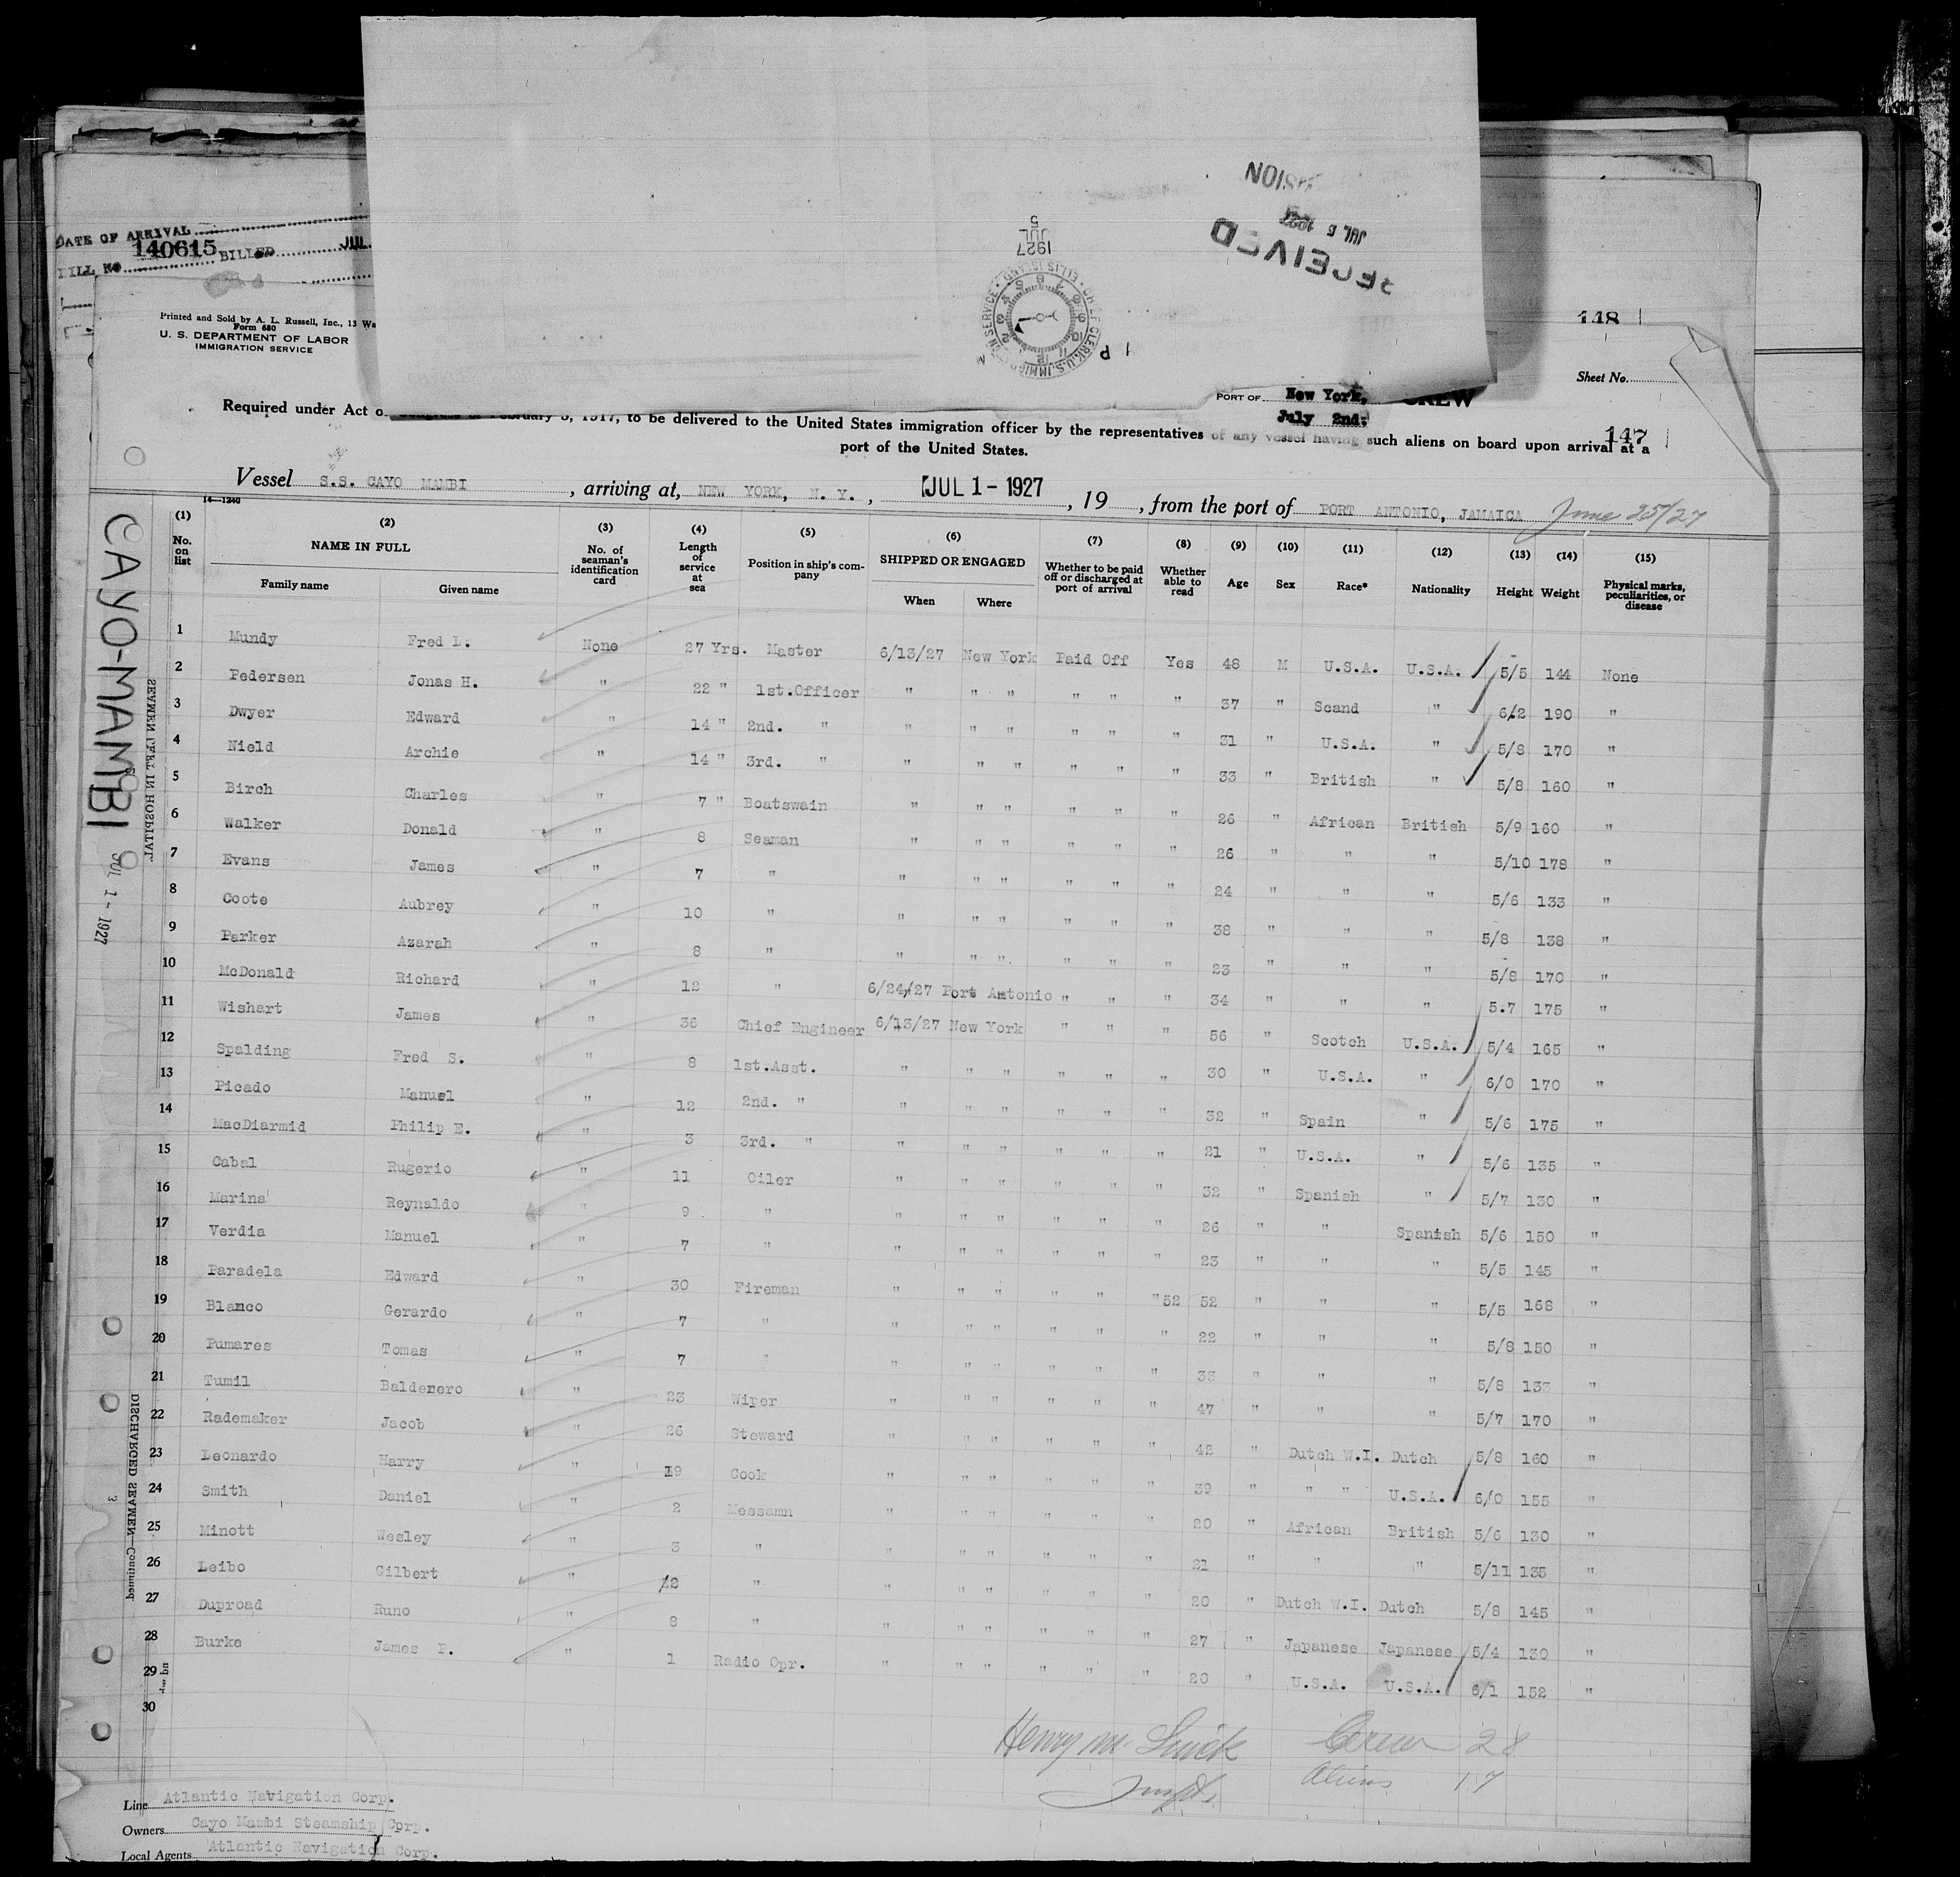 DATE OF ARRIVAL
BILL No 140615 BILLED JUL.
NOISI
JUL 5 1927
RECEIVED
5
JUL
1927
CHIEF CLERK, U.S. IMMIGRATION SERVICE · ELLIS ISLAND
1 P M
118
Printed and Sold by A. L. Russell, Inc., 13 Wa
Form 680
U. S. DEPARTMENT OF LABOR
IMMIGRATION SERVICE
Sheet No.
PORT OF New York, CREW
July 2nd.
147
Required under Act of Congress of February 5, 1917, to be delivered to the United States immigration officer by the representatives of any vessel having such aliens on board upon arrival at a
port of the United States.
Vessel S.S. CAYO MAMBI, arriving at, NEW YORK, N. Y., JUL 1 - 1927, 19, from the port of PORT ANTONIO, JAMAICA June 25/27
14—1240
(1) (2) (3) (4) (5) (6) (7) (8) (9) (10) (11) (12) (13) (14) (15)
No. on list NAME IN FULL Family name Given name No. of seaman's identification card Length of service at sea Position in ship's company SHIPPED OR ENGAGED When Where Whether to be paid off or discharged at port of arrival Whether able to read Age Sex Race* Nationality Height Weight Physical marks, peculiarities, or disease
1 Mundy Fred L. None 27 Yrs. Master 6/13/27 New York Paid Off Yes 48 M U.S.A. U.S.A. 5/5 144 None
2 Pedersen Jonas H. " 22 " 1st.Officer " " " " " " 37 " Scand " 6/2 190 "
3 Dwyer Edward " 14 " 2nd. " " " " " " " 31 " U.S.A. " 5/8 170 "
4 Nield Archie " 14 " 3rd. " " " " " " " 33 " British " 5/8 160 "
5 Birch Charles " 7 " Boatswain " " " " " " 26 " African British 5/9 160 "
6 Walker Donald " 8 Seaman " " " " " " 26 " " " 5/10 178 "
7 Evans James " 7 " " " " " " " 24 " " " 5/6 133 "
8 Coote Aubrey " 10 " " " " " " " 38 " " " 5/8 138 "
9 Parker Azarah " 8 " " " " " " " 23 " " " 5/8 170 "
10 McDonald Richard " 12 " 6/24/27 Port Antonio " " " 34 " " " 5.7 175 "
11 Wishart James " 36 Chief Engineer 6/13/27 New York " " " 56 " Scotch U.S.A. 5/4 165 "
12 Spalding Fred S. " 8 1st.Asst. " " " " " " 30 " U.S.A. " 6/0 170 "
13 Picado Manuel " 12 2nd. " " " " " " " 32 " Spain " 5/6 175 "
14 MacDiarmid Philip E. " 3 3rd. " " " " " " " 21 " U.S.A. " 5/6 135 "
15 Cabal Rugerio " 11 Oiler " " " " " " 32 " Spanish " 5/7 130 "
16 Marina Reynaldo " 9 " " " " " " " 26 " " Spanish 5/6 150 "
17 Verdia Manuel " 7 " " " " " " " 23 " " " 5/5 145 "
18 Paradela Edward " 30 Fireman " " " " " " 52 52 " " " 5/5 168 "
19 Blanco Gerardo " 7 " " " " " " " 22 " " " 5/8 150 "
20 Pumares Tomas " 7 " " " " " " " 33 " " " 5/8 133 "
21 Tumil Baldenero " 23 Wiper " " " " " " 47 " " " 5/7 170 "
22 Rademaker Jacob " 26 Steward " " " " " " 42 " Dutch W.I. Dutch 5/8 160 "
23 Leonardo Harry " 19 Cook " " " " " " 39 " " " U.S.A. 6/0 155 "
24 Smith Daniel " 2 Messamn " " " " " " 20 " African British 5/6 130 "
25 Minott Wesley " 3 " " " " " " " 21 " " " 5/11 135 "
26 Leibo Gilbert " 2 " " " " " " " 20 " Dutch W.I. Dutch 5/8 145 "
27 Duproad Runo " 8 " " " " " " " 27 " Japanese Japanese 5/4 130 "
28 Burke James P. " 1 Radio Opr. " " " " " " 20 " U.S.A. U.S.A. 6/1 152 "
29
30
CAYO-MAMBI
JUL 1 - 1927
SEAMEN LEFT IN HOSPITAL
DISCHARGED SEAMEN—Continued
3
Henry M. Crew 28
Aliens 17
Line Atlantic Navigation Corp.
Owners Cayo Mambi Steamship Corp.
Local Agents Atlantic Navigation Corp.